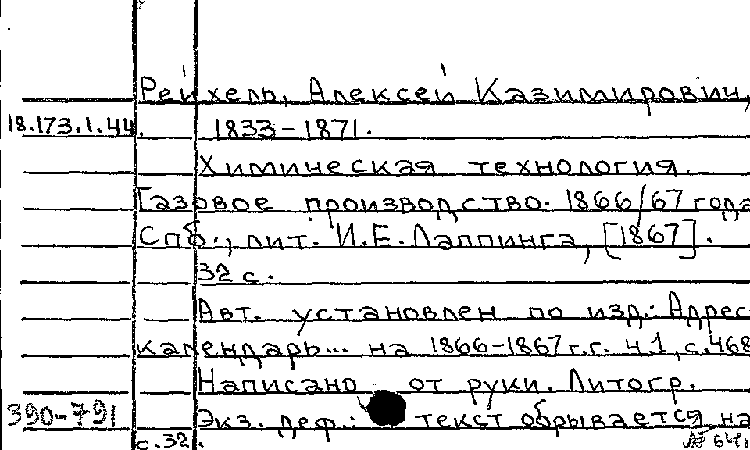 Рейхель, Алексей Казимирович,
18.173.1.44. 1833-1871.
Химическая технология.
Газовое производство. 1866/67 года
Спб., лит. И.Е. Лаппинга, [1867].
32 с.
Авт. установлен по изд.: Адрес
календарь... на 1866-1867 г.г. ч.1, с.468
Написано от руки. Литогр.
390-791 Экз. деф.: текст обрывается на
с.32.